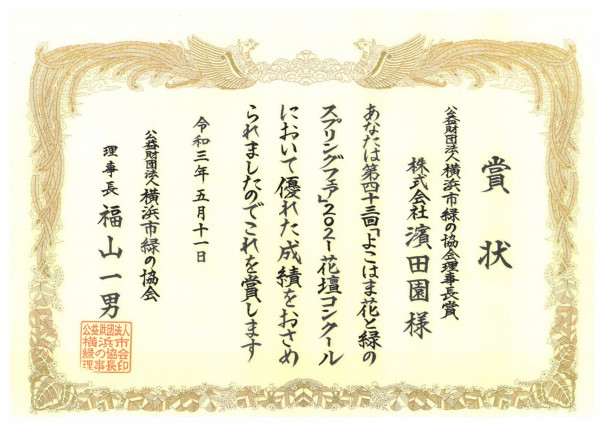 賞状
公益財団法人横浜市緑の協会理事長賞
株式会社 濱田園様
あなたは第四十三回「よこはま花と緑の
スプリングフェア」2021 花壇コンクール
において優れた成績をおさめ
られましたのでこれを賞します
令和三年五月十一日
公益財団法人横浜市緑の協会
理事長 福山一男
公益財団法人
横浜市
緑の協会
理事長印